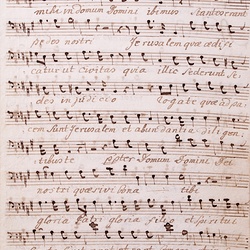 mihi in domum Domini ibimus Stantes erant
pedes nostri Jerusalem quæ ædifi
catur ut Civitas quia illic Sederunt Se
des in judicio rogate quæ ad pa
cem Sunt Jerusalem et abundantia diligen
tibus te propter Domum Domini Dei
nostri quæsivi bona tibi
gloria Patri gloria filio et Spiritui